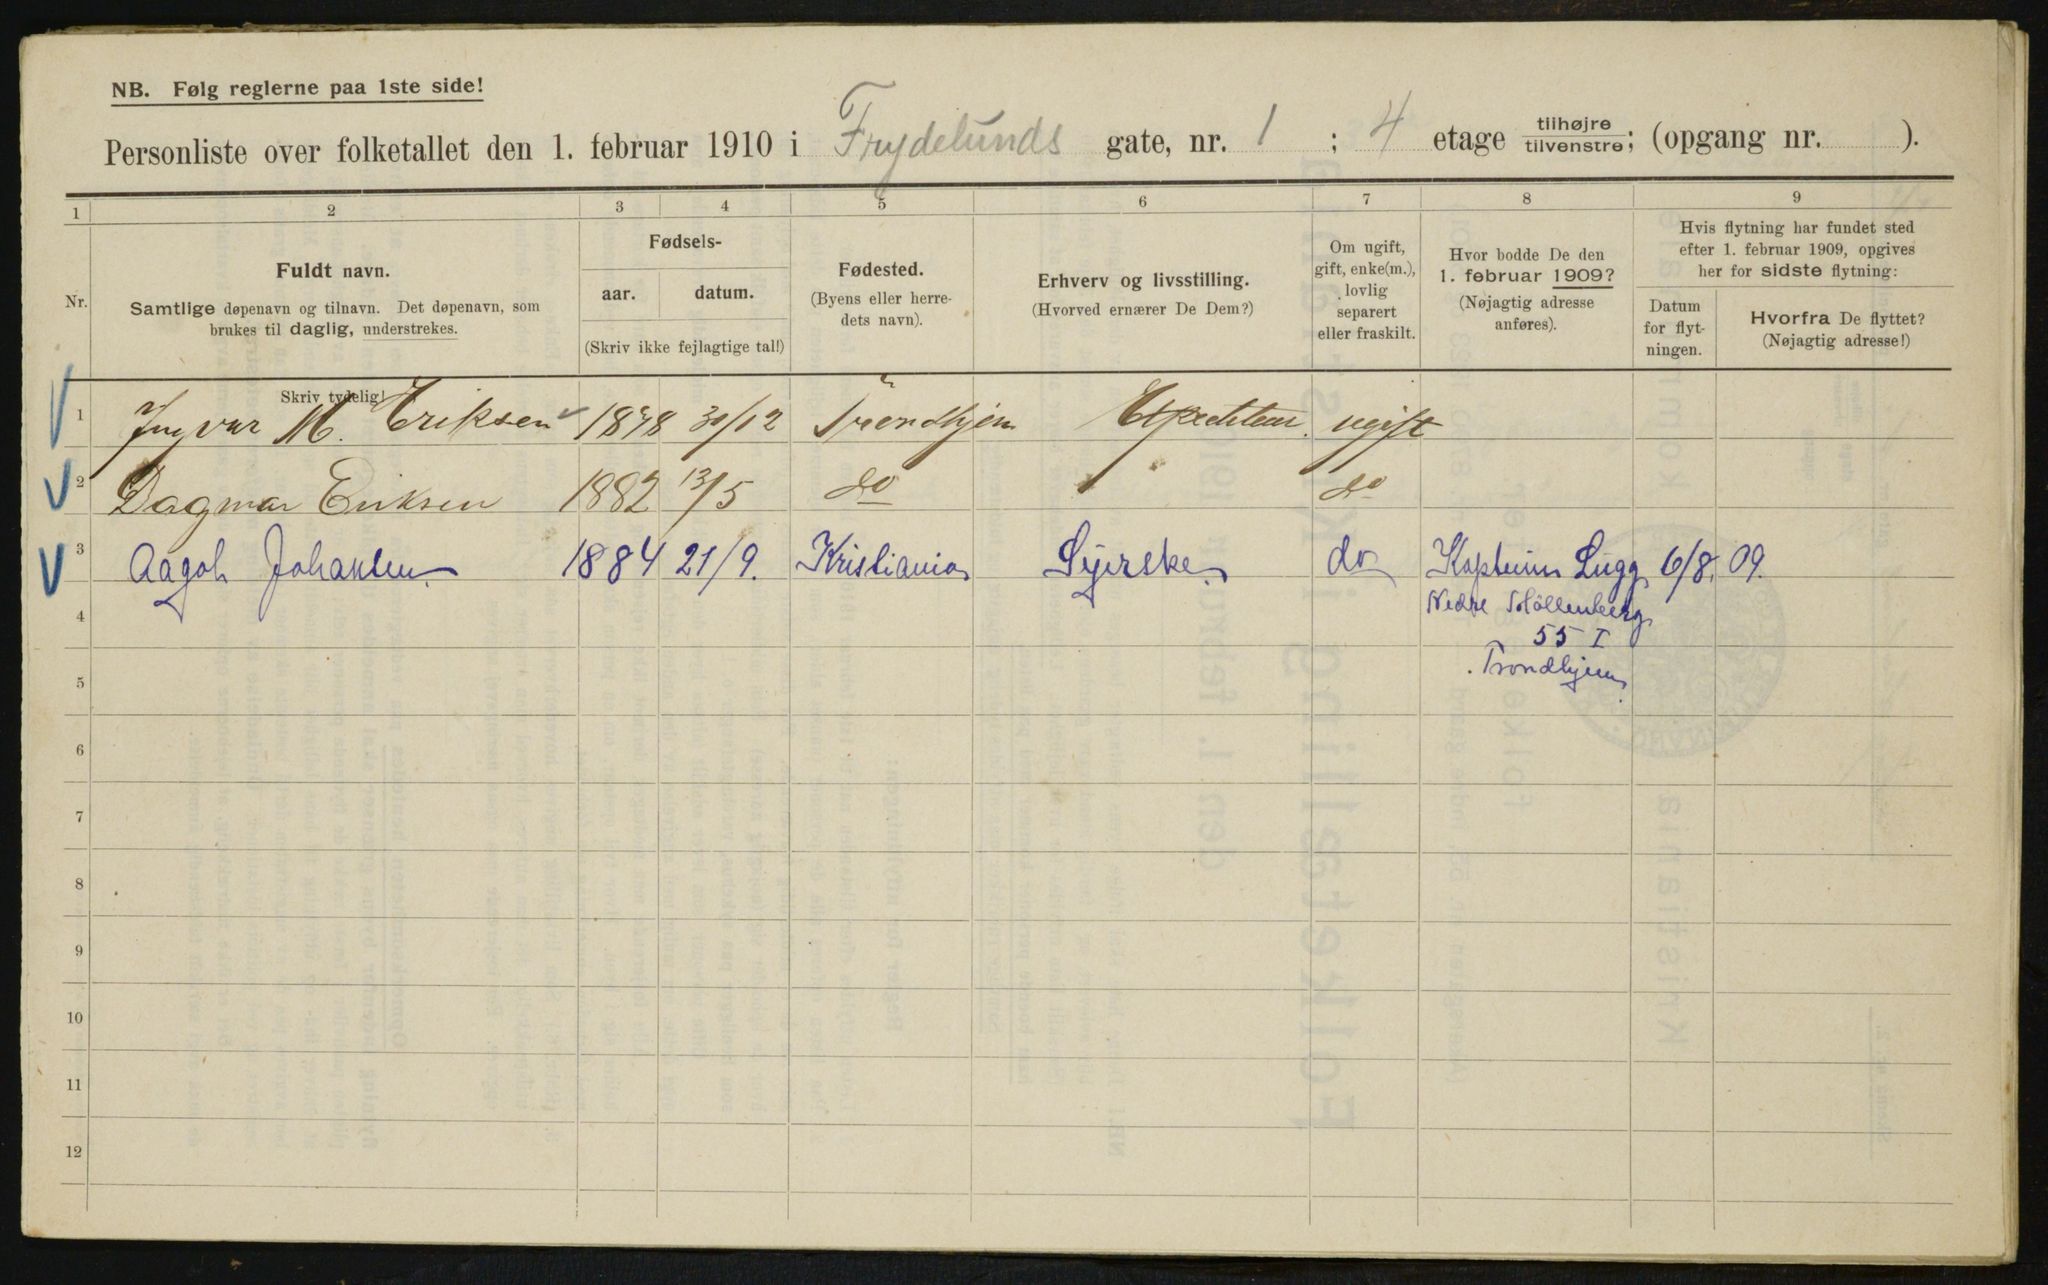 NB. Følg reglerne paa 1ste side!
Personliste over folketallet den 1. februar 1910 i Frydelunds gate, nr. 1 ; 4 etage tilhøjre / tilvenstre; (opgang nr. ).
1 2 3 4 5 6 7 8 9
Nr.
Fuldt navn.
Samtlige døpenavn og tilnavn. Det døpenavn, som
brukes til daglig, understrekes.
Skriv tydelig!
Fødsels-
aar. datum.
(Skriv ikke fejlagtige tal!)
Fødested.
(Byens eller herre-
dets navn).
Erhverv og livsstilling.
(Hvorved ernærer De Dem?)
Om ugift,
gift, enke(m.),
lovlig
separert
eller fraskilt.
Hvor bodde De den
1. februar 1909?
(Nøjagtig adresse
anføres).
Hvis flytning har fundet sted
efter 1. februar 1909, opgives
her for sidste flytning:
Datum
for flyt-
ningen.
Hvorfra De flyttet?
(Nøjagtig adresse!)
1 Ingvar M. Eriksen 1878 30/12 Trondhjem Expediteur. ugift
2 Dagmar Eriksen 1882 13/5 do do
3 Aagot Johansen 1884 21/9. Kristiania Syerske. do 6/8. 09.
4 Nedre Möllenberg
55 I
5 Trondhjem.
6
7
8
9
10
11
12